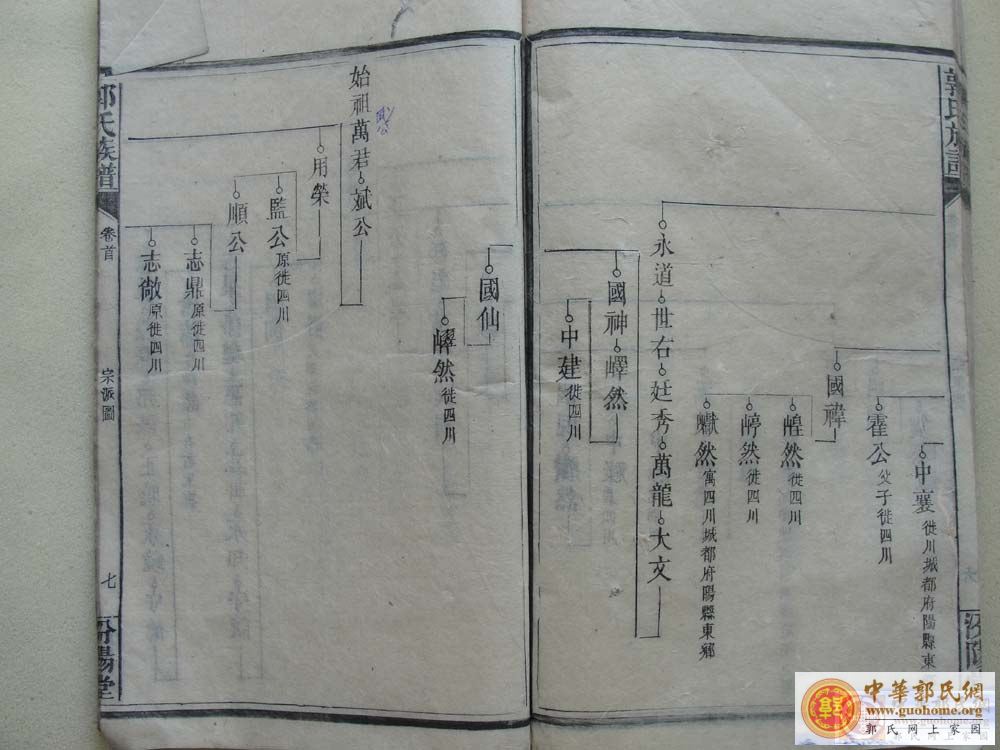 郭氏族譜
汾陽
中襄 徙川城都府陽縣東
霍公 父子徙四川
國禕
然 徙四川
然 徙四川
然 寓四川城都府陽縣東鄉
永道 世右 廷秀 萬龍 大文
國神 嶧然
中建 徙四川
國仙
然 徙四川
始祖萬君 斌公
用榮
監公 原徙四川
順公
志鼎 原徙四川
志敞 原徙四川
郭氏族譜
卷首
宗派圖
七
汾陽堂
中華郭氏網
www.guohome.org
郭氏网上家园